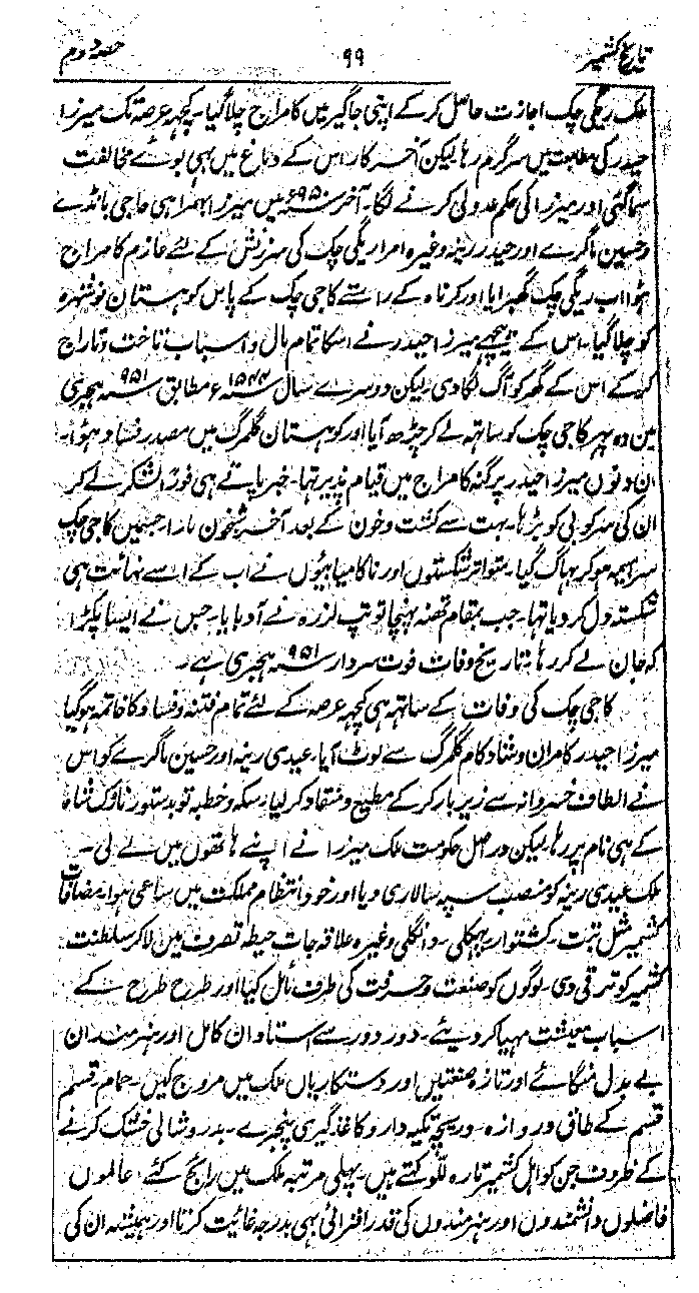 تاریخ کشمیر ۹۹ حصہ دوم
ملک ریگی چک اجازت حاصل کرکے اپنی جاگیر میں کامراج چلا گیا۔ کچہہ عرصہ تک میرزا
حیدر کی متابعت میں سرگرم رہا لیکن آخر کار اس کے دماغ میں بہی بوئے مخالفت
سماگئی اور میرزا کی حکم عدولی کرنے لگا۔ آخر ۹۵۰ھ میں میرزا بہمراہی حاجی بانڈے
وحسین ماگرے اور حیدر رینہ وغیرہ امرا ریگی چک کی سرزنش کے لئے عازم کامراج
ہوا اب ریگی چک گھبرایا اور کرناہ کے راستے کاجی چک کے پاس کوہستان نوشہرہ
کو چلاگیا۔ اس کے پیچھے میرزا حیدر نے اسکا تمام مال و اسباب تاخت و تاراج
کرکے اس کے گھر کو آگ لگا دی۔ لیکن دوسرے سال ۱۵۴۴ء مطابق ۹۵۱ سنہ ہجری
میں وہ پہر کاجی چک کو ساتہہ لے کر چڑھ آیا اور کوہستان گلمرگ میں مصدر فساد ہوا۔
ان دنوں میرزا حیدر پرگنہ کامراج میں قیام پذیر تہا۔ خبر پاتے ہی فوراً لشکر لے کر
ان کی سرکوبی کو بڑہا۔ بہت سے کشت و خون کے بعد آخر شبخون مارا۔ جسمیں کاجی چک
سراسیمہ ہوکر بہاگ گیا۔ متواتر شکستوں اور ناکامیابیوں نے اب کے اسے نہائت ہی
شکستہ دل کردیا تہا۔ جب بمقام تھنہ پہنچا تو تپ لرزہ نے آدبایا۔ جس نے ایسا پکڑا
کہ جان لے کر رہا۔ تاریخ وفات فوت سردار ۹۵۱ سنہ ہجری ہے۔
کاجی چک کی وفات کے ساتہہ ہی کچہہ عرصہ کے لئے تمام فتنہ و فساد کا خاتمہ ہوگیا
میرزا حیدر کامران و شاد کام گلمرگ سے لوٹ آیا۔ عیدی رینہ اور حسین ماگرے کو اس
نے الطاف خسروانہ سے زیر بار کرکے مطیع و منقاد کرلیا۔ سکہ و خطبہ تو بدستور نازک شاہ
کے ہی نام پر رہا۔ لیکن دراصل حکومت ملک میرزا نے اپنے ہاتھوں میں لے لی۔
ملک عیدی رینہ کو منصب سپہ سالاری دیا اور خود انتظام مملکت میں ساعی ہوا۔ مضافات
کشمیر مثل تبت۔ کشتوار۔ پہکلی۔ دانگلی وغیرہ علاقہ جات حیطہ تصرف میں لاکر سلطنت
کشمیر کو ترقی دی۔ لوگوں کو صنعت و حرفت کی طرف مائل کیا اور طرح طرح کے
اسباب معیشت مہیا کردیئے۔ دور دور سے استادان کامل اور ہنرمندان
بے بدل منگائے اور تازہ صنعتیں اور دستکاریاں ملک میں مروج کیں۔ حمام قسم
قسم کے طاق و دروازہ۔ دریچہ تکیہ دار و کاغذ گیری پنجرے۔ شالی خشک کرنے
کے ظروف جن کو اہل کشمیر کہتے ہیں۔ پہلی مرتبہ ملک میں رائج کئے۔ عالموں
فاضلوں دانشمندوں اور ہنرمندوں کی قدر افزائی بہی بدرجہ غائیت کرتا اور ہمیشہ ان کی